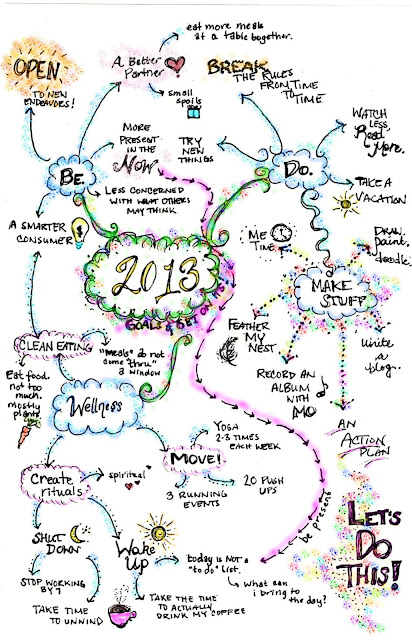 eat more meals
at a table together.
A Better
Partner
small
spoils
OPEN
TO NEW
ENDEAVORS!
BREAK
THE RULES
FROM TIME
TO TIME
MORE
PRESENT
IN THE
NOW
TRY
NEW
THINGS
WATCH
LESS,
Read
More.
BE.
DO.
LESS CONCERNED
WITH WHAT OTHERS
MAY THINK
TAKE A
VACATION
A SMARTER
CONSUMER
$
2013
ME
TIME
DRAW.
paint.
doodle.
MAKE
STUFF
FEATHER
MY
NEST
RECORD AN
ALBUM
WITH
MO
write
a
blog.
AN
ACTION
PLAN
CLEAN EATING
"meals" do not
come "thru"
a window
Eat food.
not too
much.
mostly
plants.
Wellness
MOVE!
YOGA
2-3 TIMES
EACH WEEK
20 PUSH
UPS
3 RUNNING
EVENTS
Create
rituals
spiritual
SHUT
DOWN
STOP WORKING
BY 7
TAKE TIME
TO UNWIND
Wake
UP
today is NOT a
"to do" list.
what can
i bring to
the day?
TAKE THE TIME
TO ACTUALLY
DRINK MY COFFEE
be present
LET'S
DO
THIS!